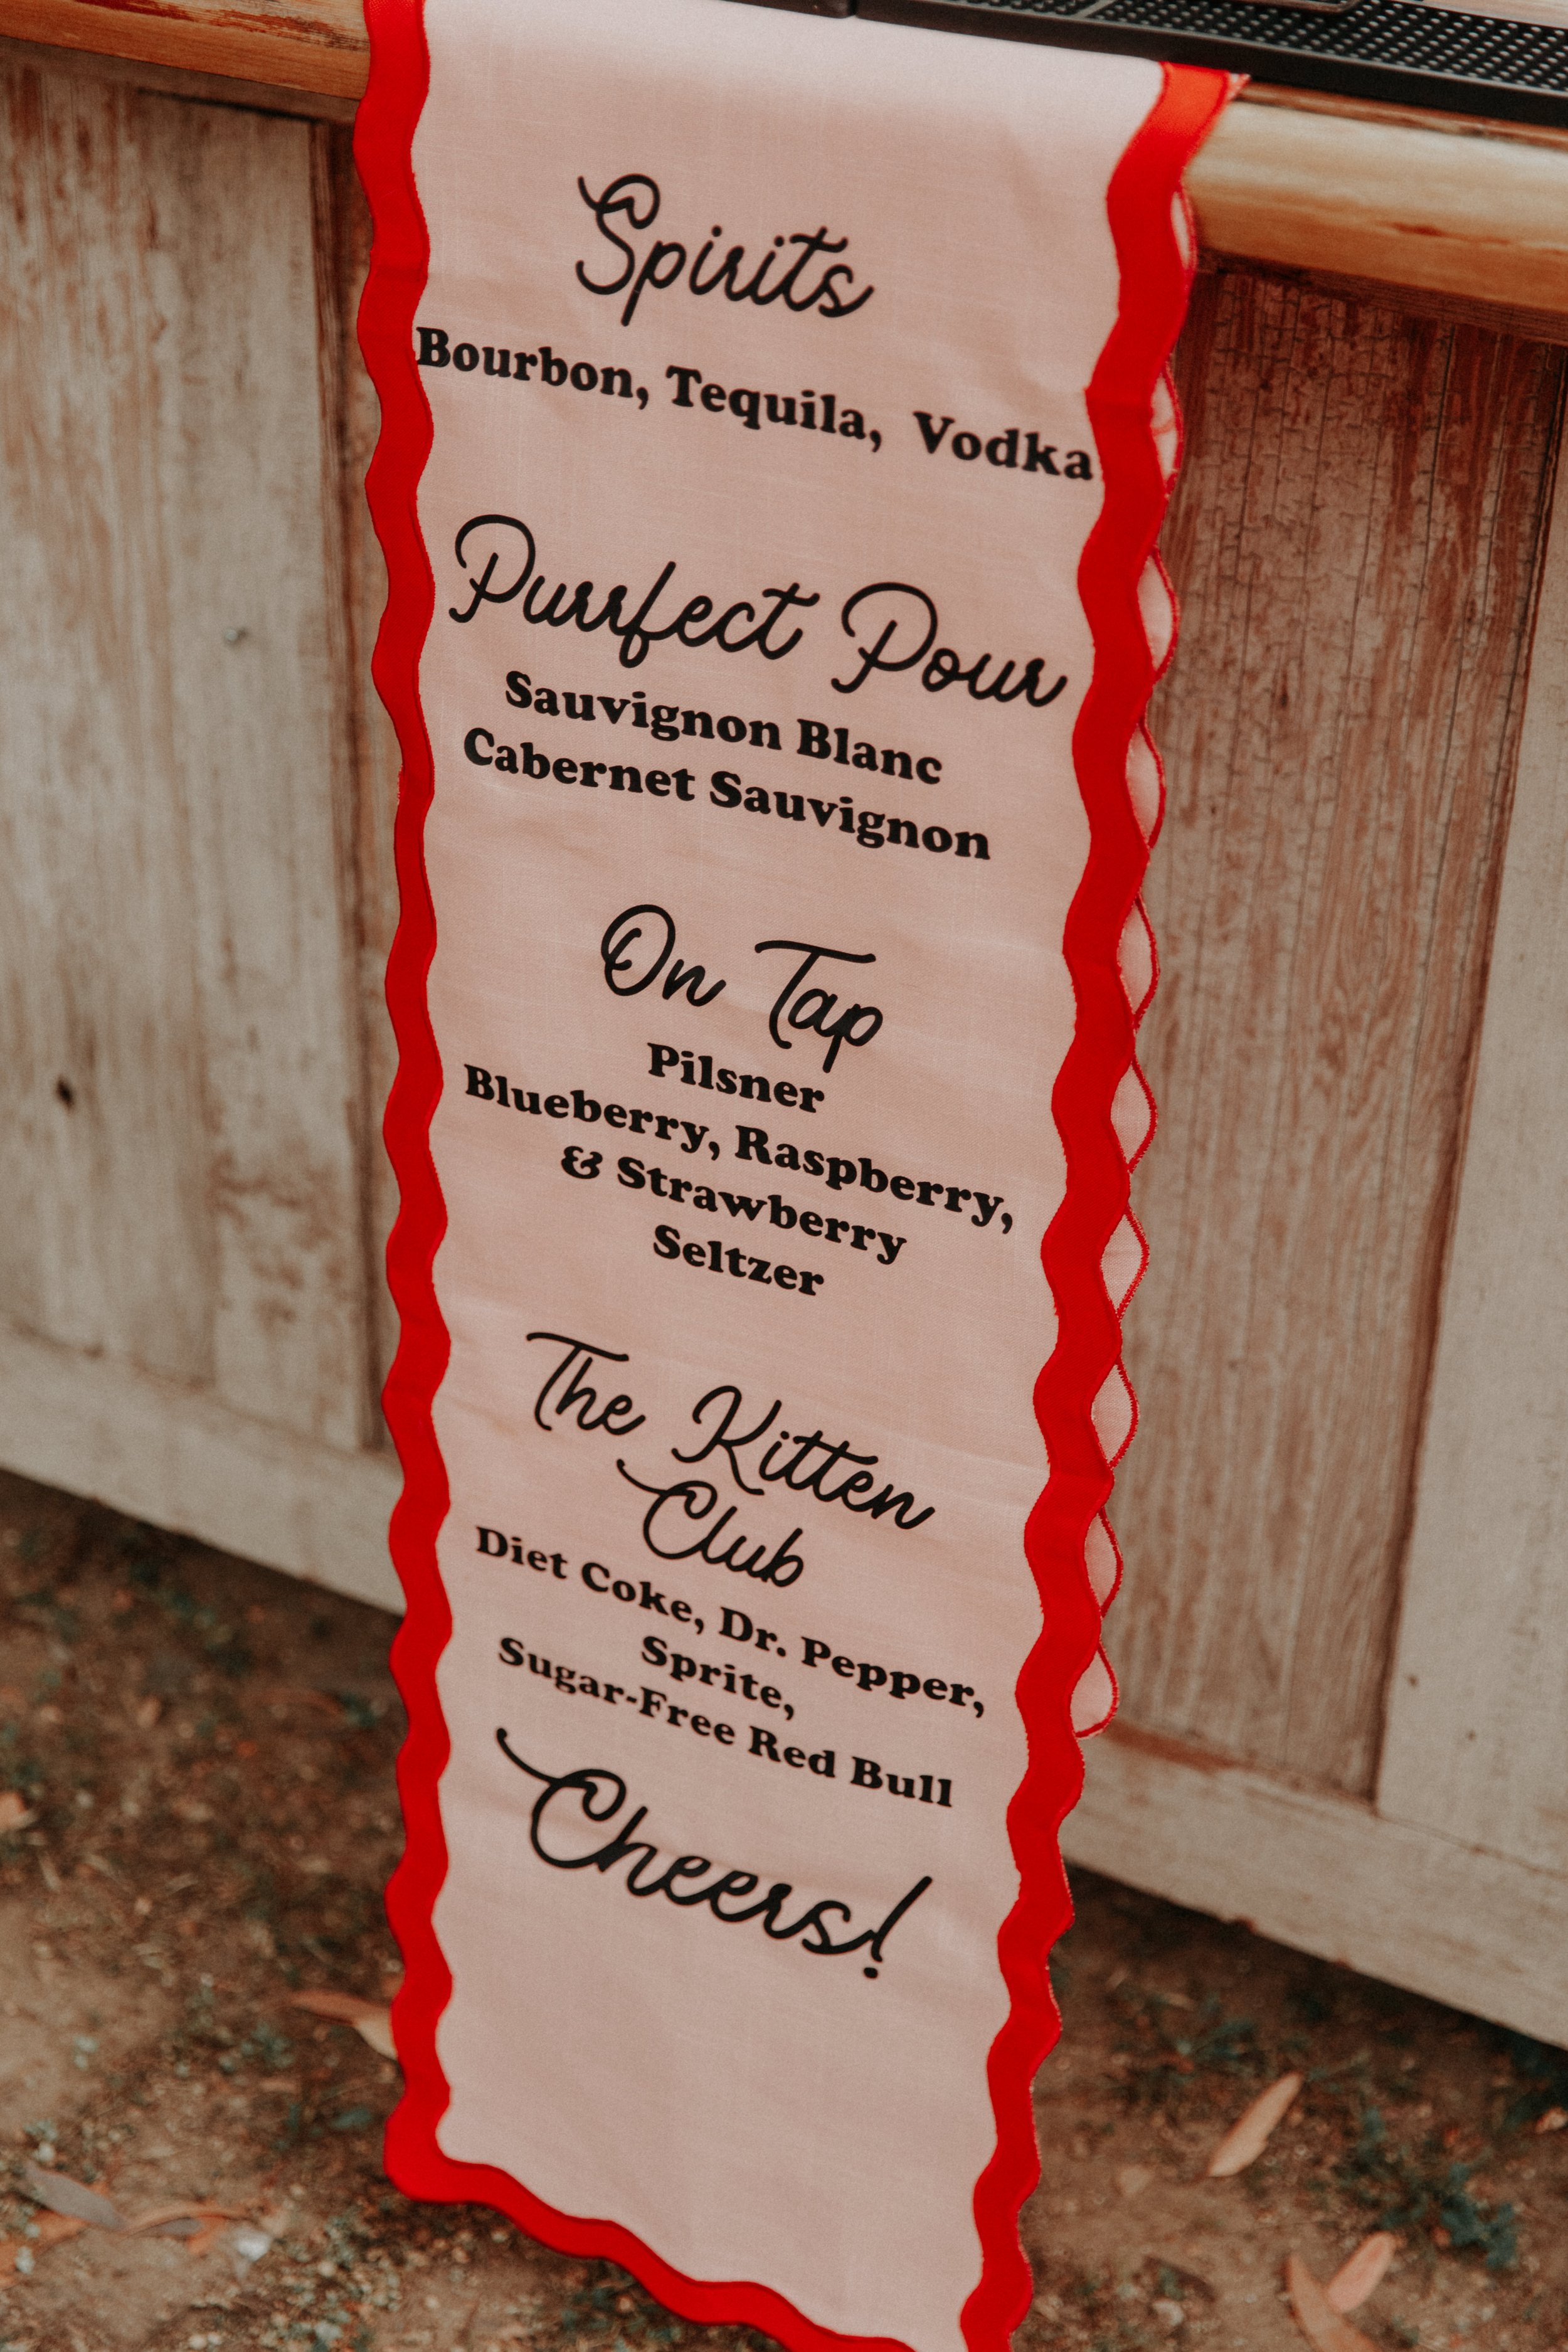 Spirits
Bourbon, Tequila, Vodka
Purrfect Pour
Sauvignon Blanc
Cabernet Sauvignon
On Tap
Pilsner
Blueberry, Raspberry,
& Strawberry
Seltzer
The Kitten
Club
Diet Coke, Dr. Pepper,
Sprite,
Sugar-Free Red Bull
Cheers!